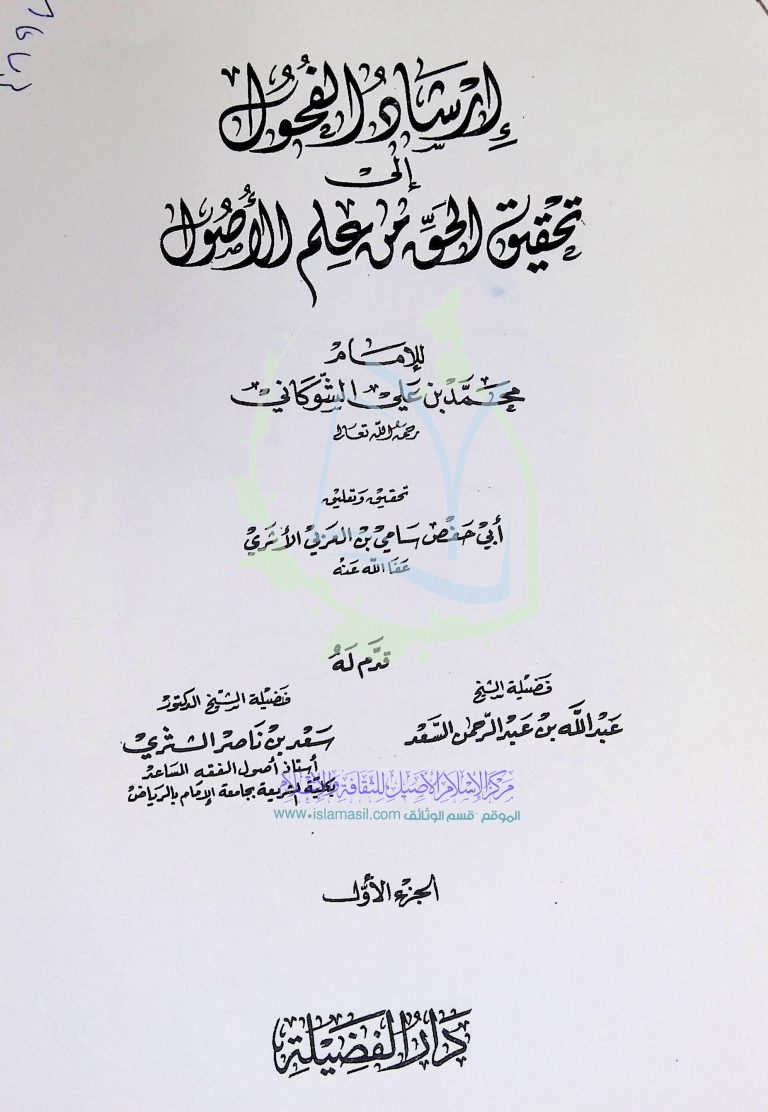 إِرْشَادُ الفُحُول
إلى
تحقيق الحقِّ من عِلم الأُصُول
للإمام
محمَّد بن علي الشَّوكاني
رحمه الله تعالى
تحقيق وتعليق
أبي حفص سامي بن العربي الأثري
عفا الله عنه
قدَّم له
فضيلة الشيخ
عبد الله بن عبد الرحمن السَّعد
فضيلة الشيخ الدكتور
سعد بن ناصر الشثري
أستاذ أصول الفقه المساعد
بكلية الشريعة بجامعة الإمام بالرياض
مركز الإسلام الأصيل للثقافة والإعلام
الموقع - قسم الوثائق www.islamasil.com
الجزء الأوَّل
دَارُ الفَضِيلَةِ